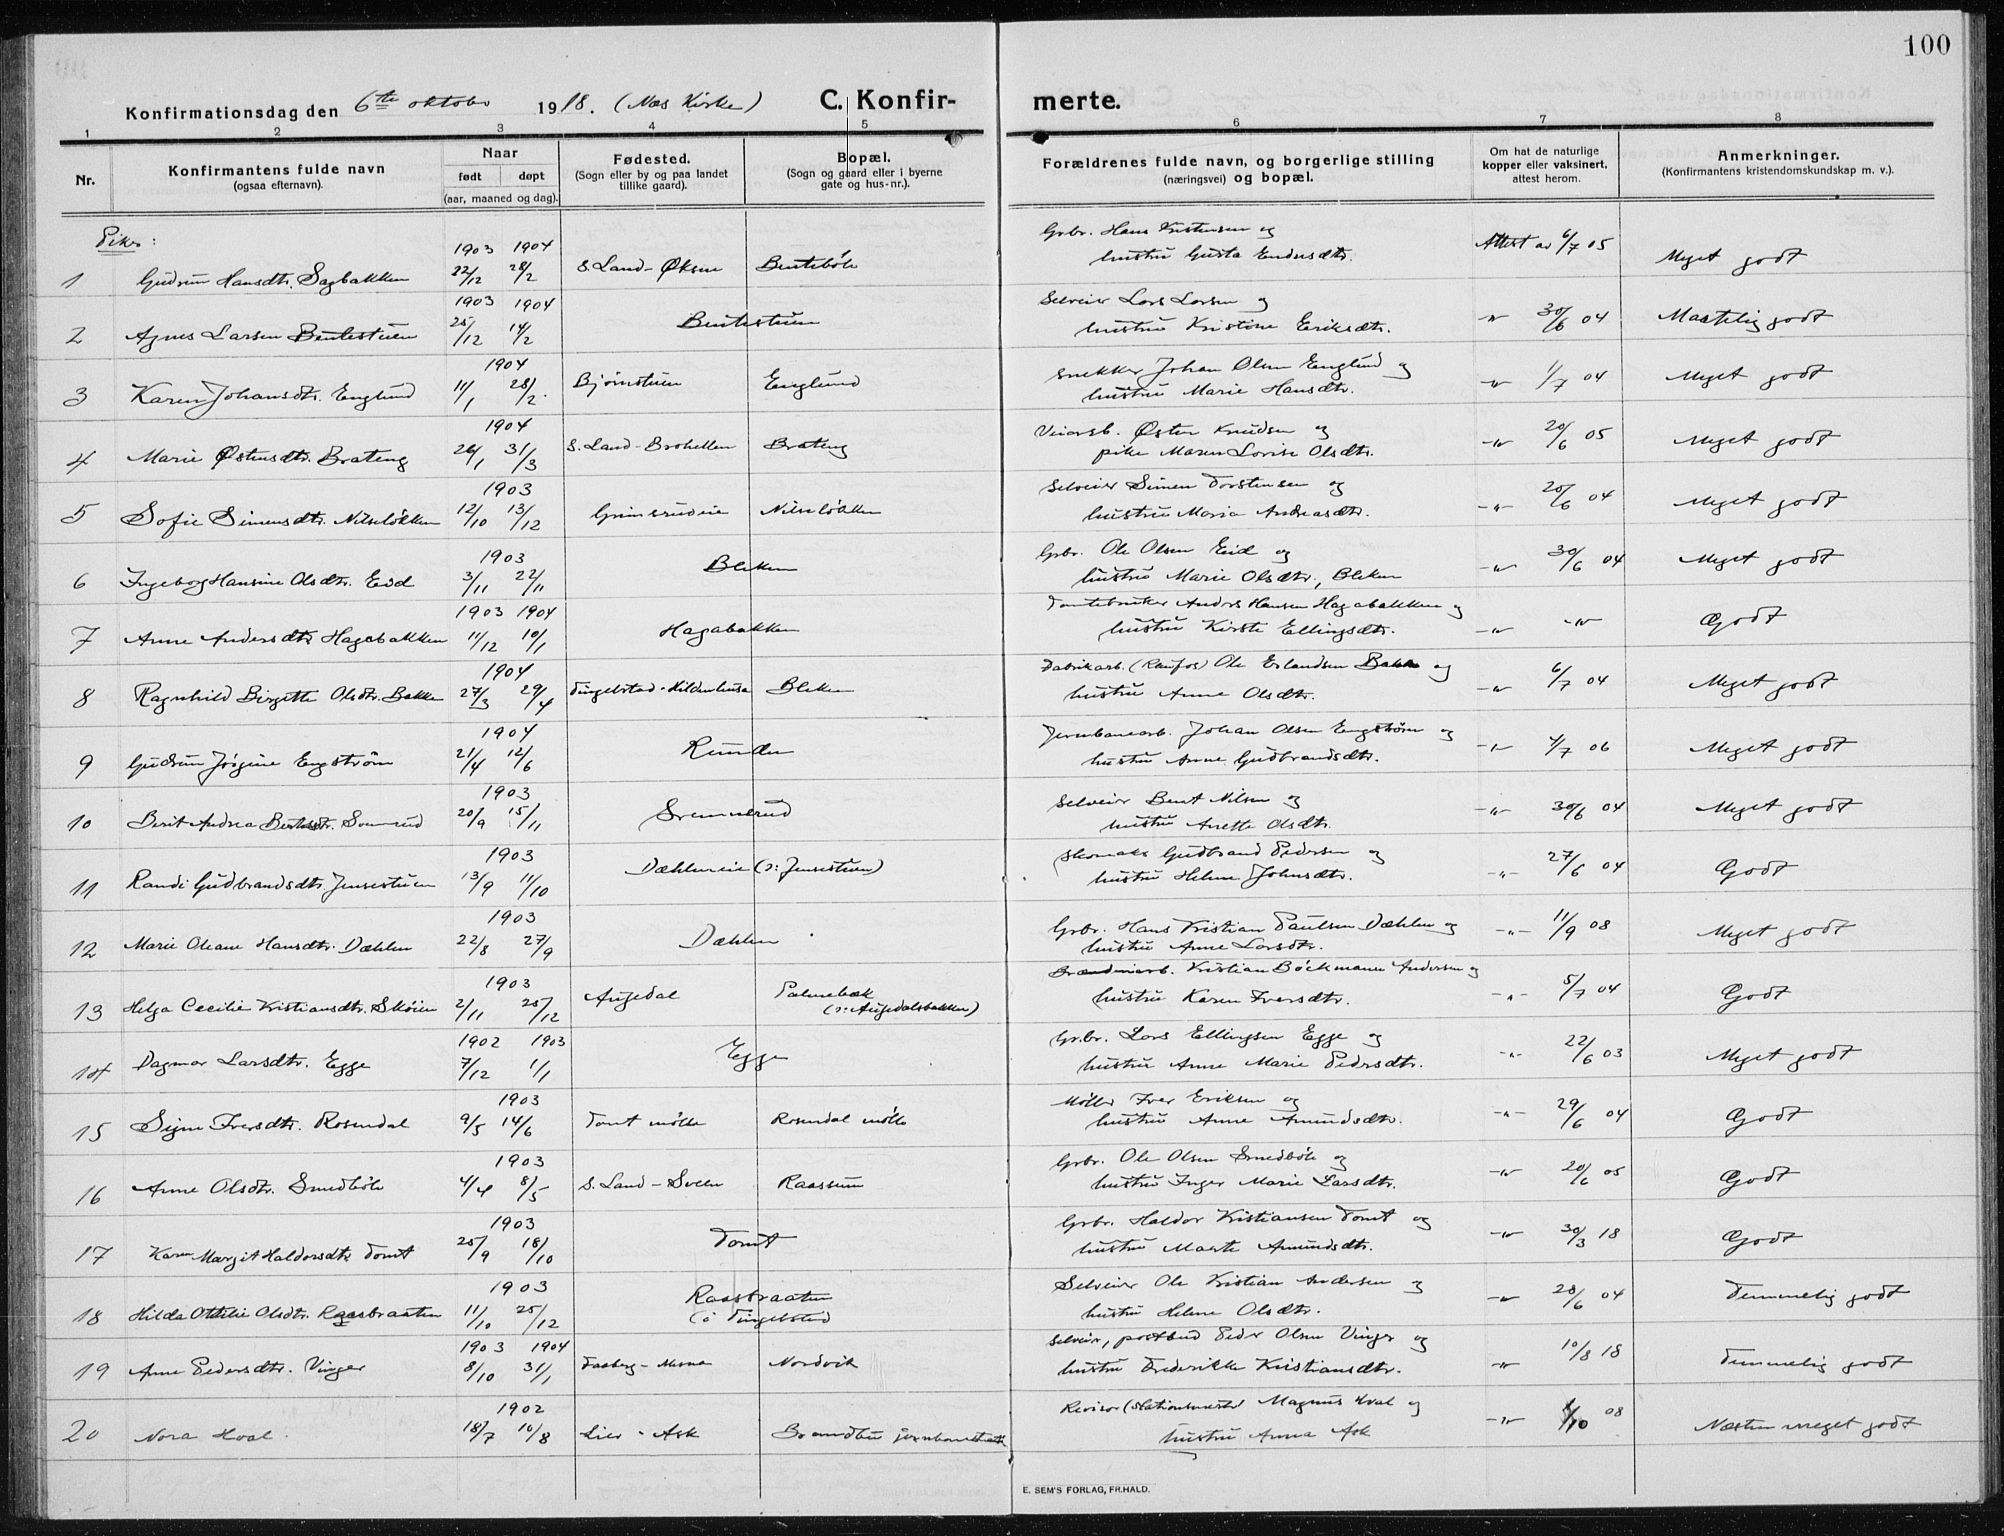 100
Konfirmationsdag den 6te oktober 1918. (Næs Kirke) C. Konfirmerte.
1 2 3 4 5 6 7 8
Nr.
Konfirmantens fulde navn
(ogsaa efternavn).
Naar
født døpt
(aar, maaned og dag).
Fødested.
(Sogn eller by og paa landet
tillike gaard).
Bopæl.
(Sogn og gaard eller i byerne
gate og hus-nr.).
Forældrenes fulde navn, og borgerlige stilling
(næringsvei) og bopæl.
Om hat de naturlige
kopper eller vaksinert,
attest herom.
Anmerkninger.
(Konfirmantens kristendomskundskap m. v.).
Piker:
1903 1904 Grbr. Hans Kristensen og
1 Gudrun Hansdtr. Sagbakken 22/12 28/2 S. Land - Øksne Bentebøle hustru Gusta Endresdtr. Attest av 6/7 05 Meget godt
1903 1904 Selveier Lars Larsen og
2 Agnes Larsen Bentestuen 25/12 14/2 Bentestuen hustru Kristine Eriksdtr. -"- 30/6 04 Maatelig godt
1904 Snekker Johan Olsen Englund og
3 Karen Johansdtr. Englund 11/1 28/2 Bjørnstuen Englund hustru Marie Hansdtr. -"- 1/7 04 Meget godt
1904 Veiarb. Østen Knudsen og
4 Marie Østensdtr. Brateng 26/1 31/3 S. Land - Brohellen Brateng pike Maren Lovise Olsdtr. -"- 20/6 05 Meget godt
1903 Selveier Simen Torstensen og
5 Sofie Simensdtr. Nilseløkken 12/10 13/12 Grinsrudeie Nilseløkken hustru Maria Andreasdtr. -"- 20/6 04 Meget godt
1903 Grbr. Ole Olsen Eid og
6 Ingeborg Hansine Olsdtr. Eid 3/11 22/11 Bleken hustru Marie Olsdtr., Bleken -"- 30/6 04 Meget godt
1903 1904 Tomtebruker Anders Hansen Hagabakken og
7 Anne Andersdtr. Hagabakken 11/12 10/1 Hagabakken hustru Kirsti Ellingsdtr. -"- -"- Godt
1904 Fabrikarb. (Raufos) Ole Erlandsen Bakke og
8 Ragnhild Birgitte Olsdtr. Bakke 27/3 29/4 Tingelstad - Hildenhusa Bleken hustru Anne Olsdtr. -"- 6/7 04 Meget godt
1904 Jernbanearb. Johan Olsen Engstrøm og
9 Gudrun Jørgine Engstrøm 21/4 12/6 Runden hustru Anne Gudbrandsdtr. -"- 4/7 06 Meget godt
1903 Selveier Bent Nilsen og
10 Berit Andrea Bentsdtr. 20/9 15/11 hustru Anette Olsdtr. -"- 30/6 04 Meget godt
1903 Skomaker Gudbrand Pedersen og
11 Randi Gudbrandsdtr. Jensestuen 13/9 11/10 Dæhleneie (ɔ: Jensestuen) hustru Helene Johnsdtr. -"- 27/6 04 Godt
1903 Grbr. Hans Kristian Paulsen Dæhlen og
12 Marie Oleane Hansdtr. Dæhlen 22/8 27/9 Dæhlen hustru Anne Larsdtr. -"- 11/9 08 Meget godt
1903 Brænderiarb. Kristian Böckmann Andersen og
13 Helga Cecilie Kristiansdtr. Skøien 2/11 25/12 Augedal Palmebæk (ɔ: Augedalsbakken) hustru Karen Iversdtr. -"- 5/7 04 Godt
1902 1903 Gr.br. Lars Ellingsen Egge og
14 Dagmar Larsdtr. Egge 7/12 1/1 Egge hustru Anne Marie Pedersdtr. -"- 22/6 03 Meget godt
1903 Møller Iver Eriksen og
15 Signe Iversdtr. Rosendal 9/5 14/6 Tomt mølle Rosendal mølle hustru Anne Amundsdtr. -"- 29/6 04 Godt
1903 Grbr. Ole Olsen Smedbøle og
16 Anne Olsdtr. Smedbøle 4/4 8/5 S. Land - Sveen Raassum hustru Inger Marie Larsdtr. -"- 20/6 05 Godt
1903 Grbr. Haldor Kristiansen Tomt og
17 Karen Margit Haldorsdtr. Tomt 25/9 18/10 Tomt hustru Marte Amundsdtr. -"- 30/3 18 Godt
1903 Selveier Ole Kristian Andersen og
18 Hilda Ottilie Olsdtr. Raasbraaten 11/10 25/12 Raasbraaten (i Tingelstad hustru Helene Olsdtr. -"- 28/6 04 Temmelig godt
1903 1904 Selveier, postbud Peder Olsen Vinger og
19 Anne Pedersdtr. Vinger 8/10 31/1 Faaberg - Mesna Nordvik hustru Frederikke Kristiansdtr. -"- 10/8 18 Temmelig godt
1902 Revisor (Stationsmester) Magnus Hval og
20 Nora Hval. 18/7 10/8 Lier - Ask Brandbu hustru Anna Ask -"- 08 Næsten meget godt
E. SEM'S FORLAG, FR.HALD.